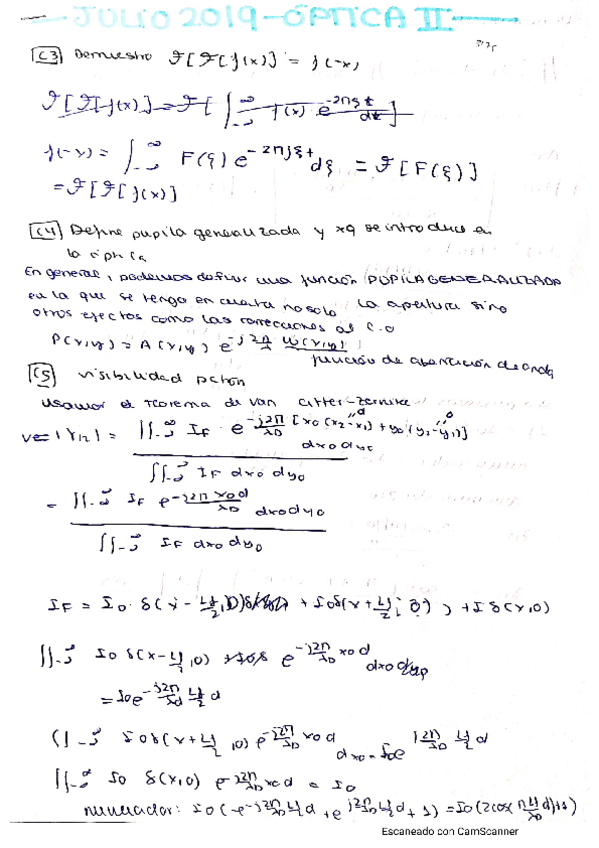 JULIO 2019 - ÓPTICA II
C3 Demuestra F[F[f(x)] = f(-x)
F[F[f(x)] = F[ ∫-∞^∞ f(x) e^-2πξt dt]
f(-x) = ∫-∞^∞ F(ξ) e^-2πjξt dξ = F[F(ξ)]
= F[F[f(x)]
C4 Define pupila generalizada y xq se introduce en
la óptica
En general, podemos definir una función PUPILA GENERALIZADA
en la que se tenga en cuenta no solo la apertura sino
otros efectos como las correcciones al C.O
P(x,y) = A(x,y) e^-j 2π/λ W(x,y)
función de aberración de onda
C5 visibilidad patrón
usamos el teorema de van citter-zernike
V = |γ12| = ∬-∞^∞ IF · e^-j2π/λD [x0(x2-x1) + y0(y2-y1)] dx0dy0
d 0
∬-∞^∞ IF dx0 dy0
= ∬-∞^∞ IF e^-j2π x0d/λD dx0dy0
∬-∞^∞ IF dx0dy0
IF = I0 · δ(x - Ly/2, 0) + I0δ(x + Ly/2, 0) + Iδ(x,0)
∬-∞^∞ I0 δ(x - Ly/2, 0) e^-j2π/λD x0d dx0dy0
= I0e^-j2π/λd Ly/2 d
∬-∞^∞ I0δ(x + Ly/2, 0) e^-j2π/λD x0d dx0 = I0e^j2π/λD Ly/2 d
∬-∞^∞ I0 δ(x,0) e^-j2π/λD x0d = I0
numerador: I0(e^-j2π/λD Ly/2 d + e^j2π/λD Ly/2 d + 1) = I0(2cos(πLy/λD d)+1)
Escaneado con CamScanner